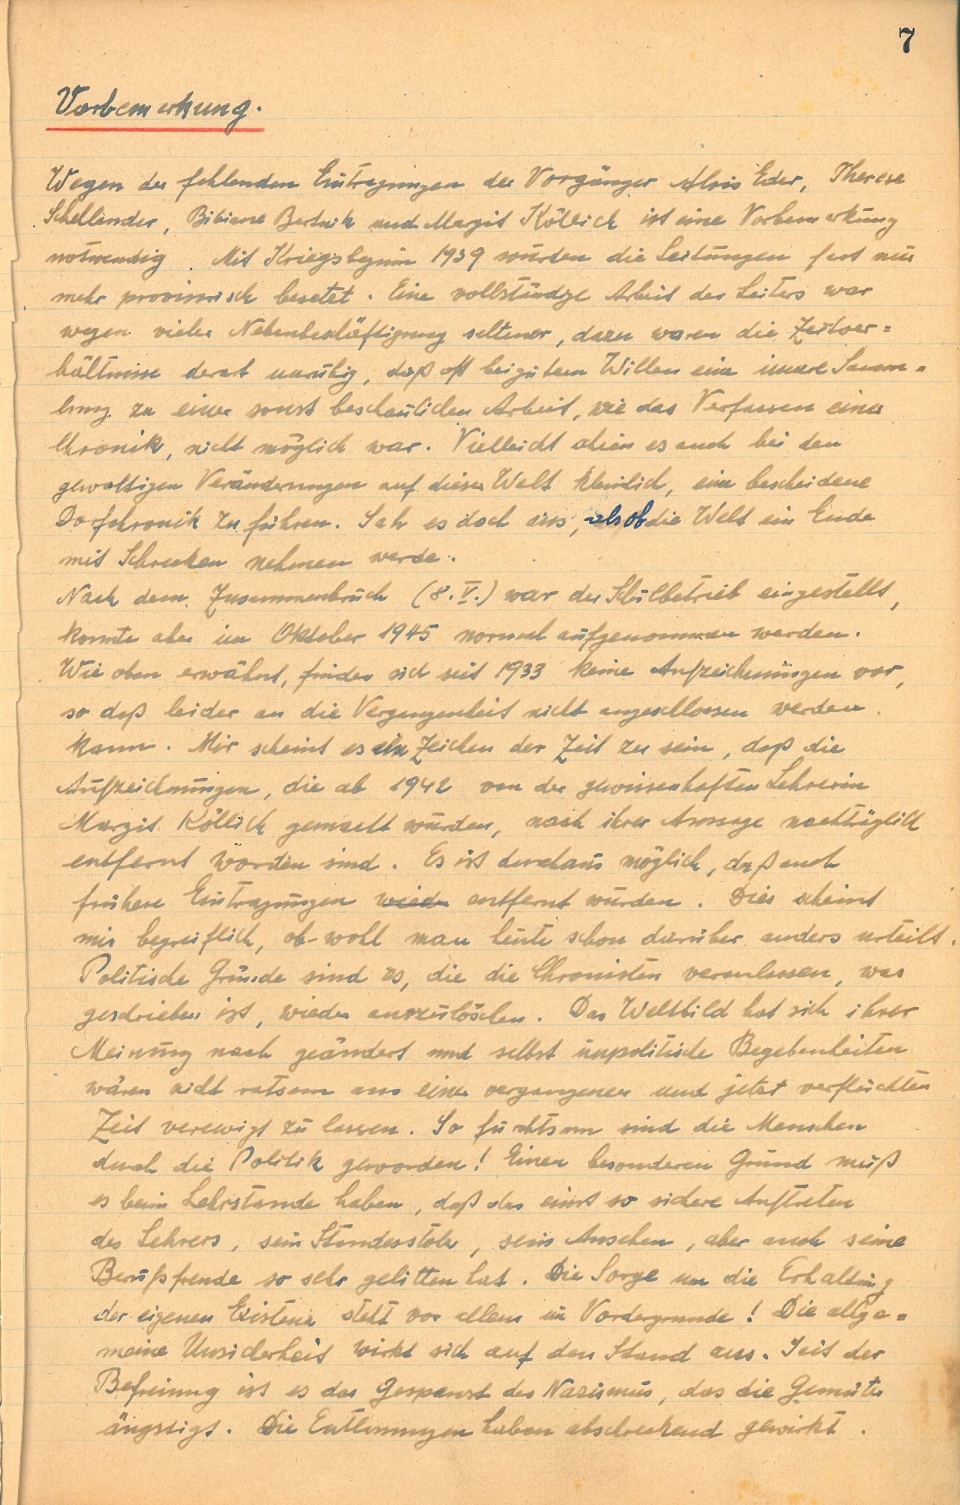 7
Vorbemerkung.
Wegen der fehlenden Eintragungen der Vorgänger Alois Eder, Therese
Schellander, Bibiane und Margit Köllich ist eine Vorbemerkung
notwendig. Mit Kriegsbeginn 1939 wurden die Leitungen fast nur
mehr provisorisch besetzt. Eine vollständige Arbeit des Leiters war
wegen vieler Nebenbeschäftigung seltener, dazu waren die Zeitver=
hältnisse derart unruhig, daß oft bei gutem Willen eine innere Samm=
lung zu einer sonst beschaulichen Arbeit, wie das Verfassen einer
Chronik, nicht möglich war. Vielleicht schien es auch bei den
gewaltigen Veränderungen auf dieser Welt kleinlich, eine bescheidene
Dorfchronik zu führen. Sah es doch aus, als ob die Welt ein Ende
mit Schrecken nehmen werde.
Nach dem Zusammenbruch (8.V.) war der Schulbetrieb eingestellt,
konnte aber im Oktober 1945 normal aufgenommen werden.
Wie oben erwähnt, finden sich seit 1933 keine Aufzeichnungen vor,
so daß leider an die Vergangenheit nicht angeschlossen werden
kann. Mir scheint es ein Zeichen der Zeit zu sein, daß die
Aufzeichnungen, die ab 1942 von der gewissenhaften Lehrerin
Margit Köllich gemacht wurden, nach ihrer Aussage nachträglich
entfernt worden sind. Es ist durchaus möglich, daß auch
frühere Eintragungen wieder entfernt wurden. Dies scheint
mir begreiflich, ob-wohl man heute schon darüber anders urteilt.
Politische Gründe sind es, die die Chronisten veranlassen, was
geschrieben ist, wieder auszulöschen. Das Weltbild hat sich ihrer
Meinung nach geändert und selbst unpolitische Begebenheiten
wären nicht ratsam aus einer vergangenen und jetzt verfluchten
Zeit verewigt zu lassen. So furchtsam sind die Menschen
durch die Politik geworden! Einen besonderen Grund muß
es beim Lehrstande haben, daß das einst so sichere Auftreten
des Lehrers, sein Standesstolz, sein Ansehen, aber auch seine
Berufsfreude so sehr gelitten hat. Die Sorge um die Erhaltung
der eigenen Existenz steht vor allem im Vordergrunde! Die allge=
meine Unsicherheit wirkt sich auf den Stand aus. Seit der
Befreiung ist es das Gespenst des Nazismus, das die Gemüter
ängstigt. Die Entlassungen haben abschreckend gewirkt.